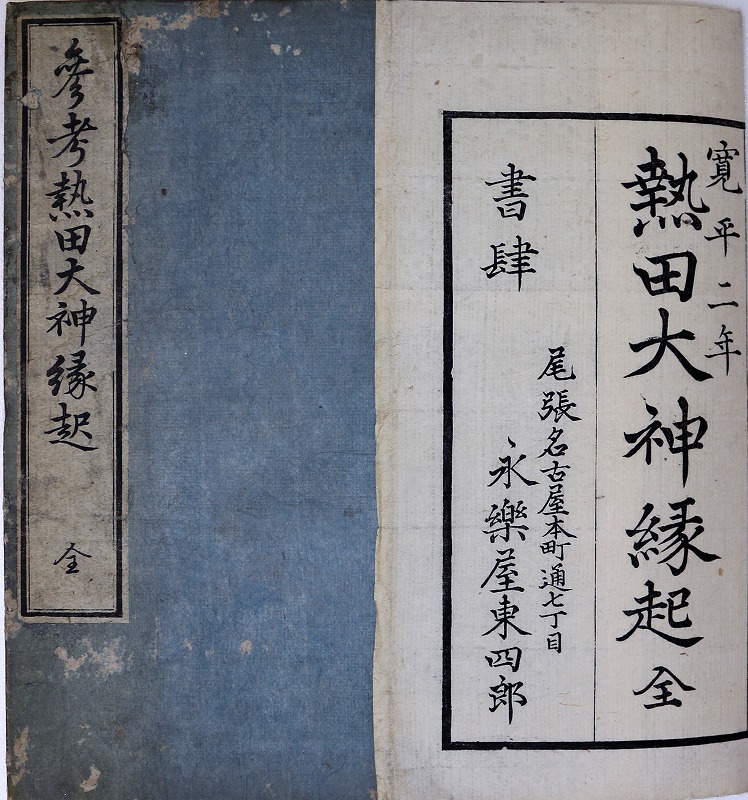 參考熱田大神縁起 全
寛平二年
熱田大神縁起 全
書肆
尾張名古屋本町通七丁目
永樂屋東四郎